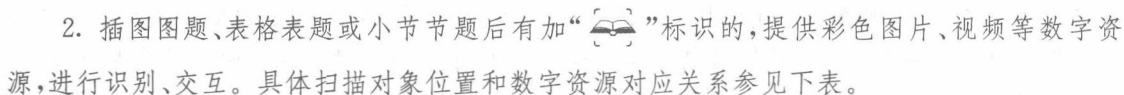 2. 插图图题、表格表题或小节节题后有加“”标识的,提供彩色图片、视频等数字资
源,进行识别、交互。具体扫描对象位置和数字资源对应关系参见下表。